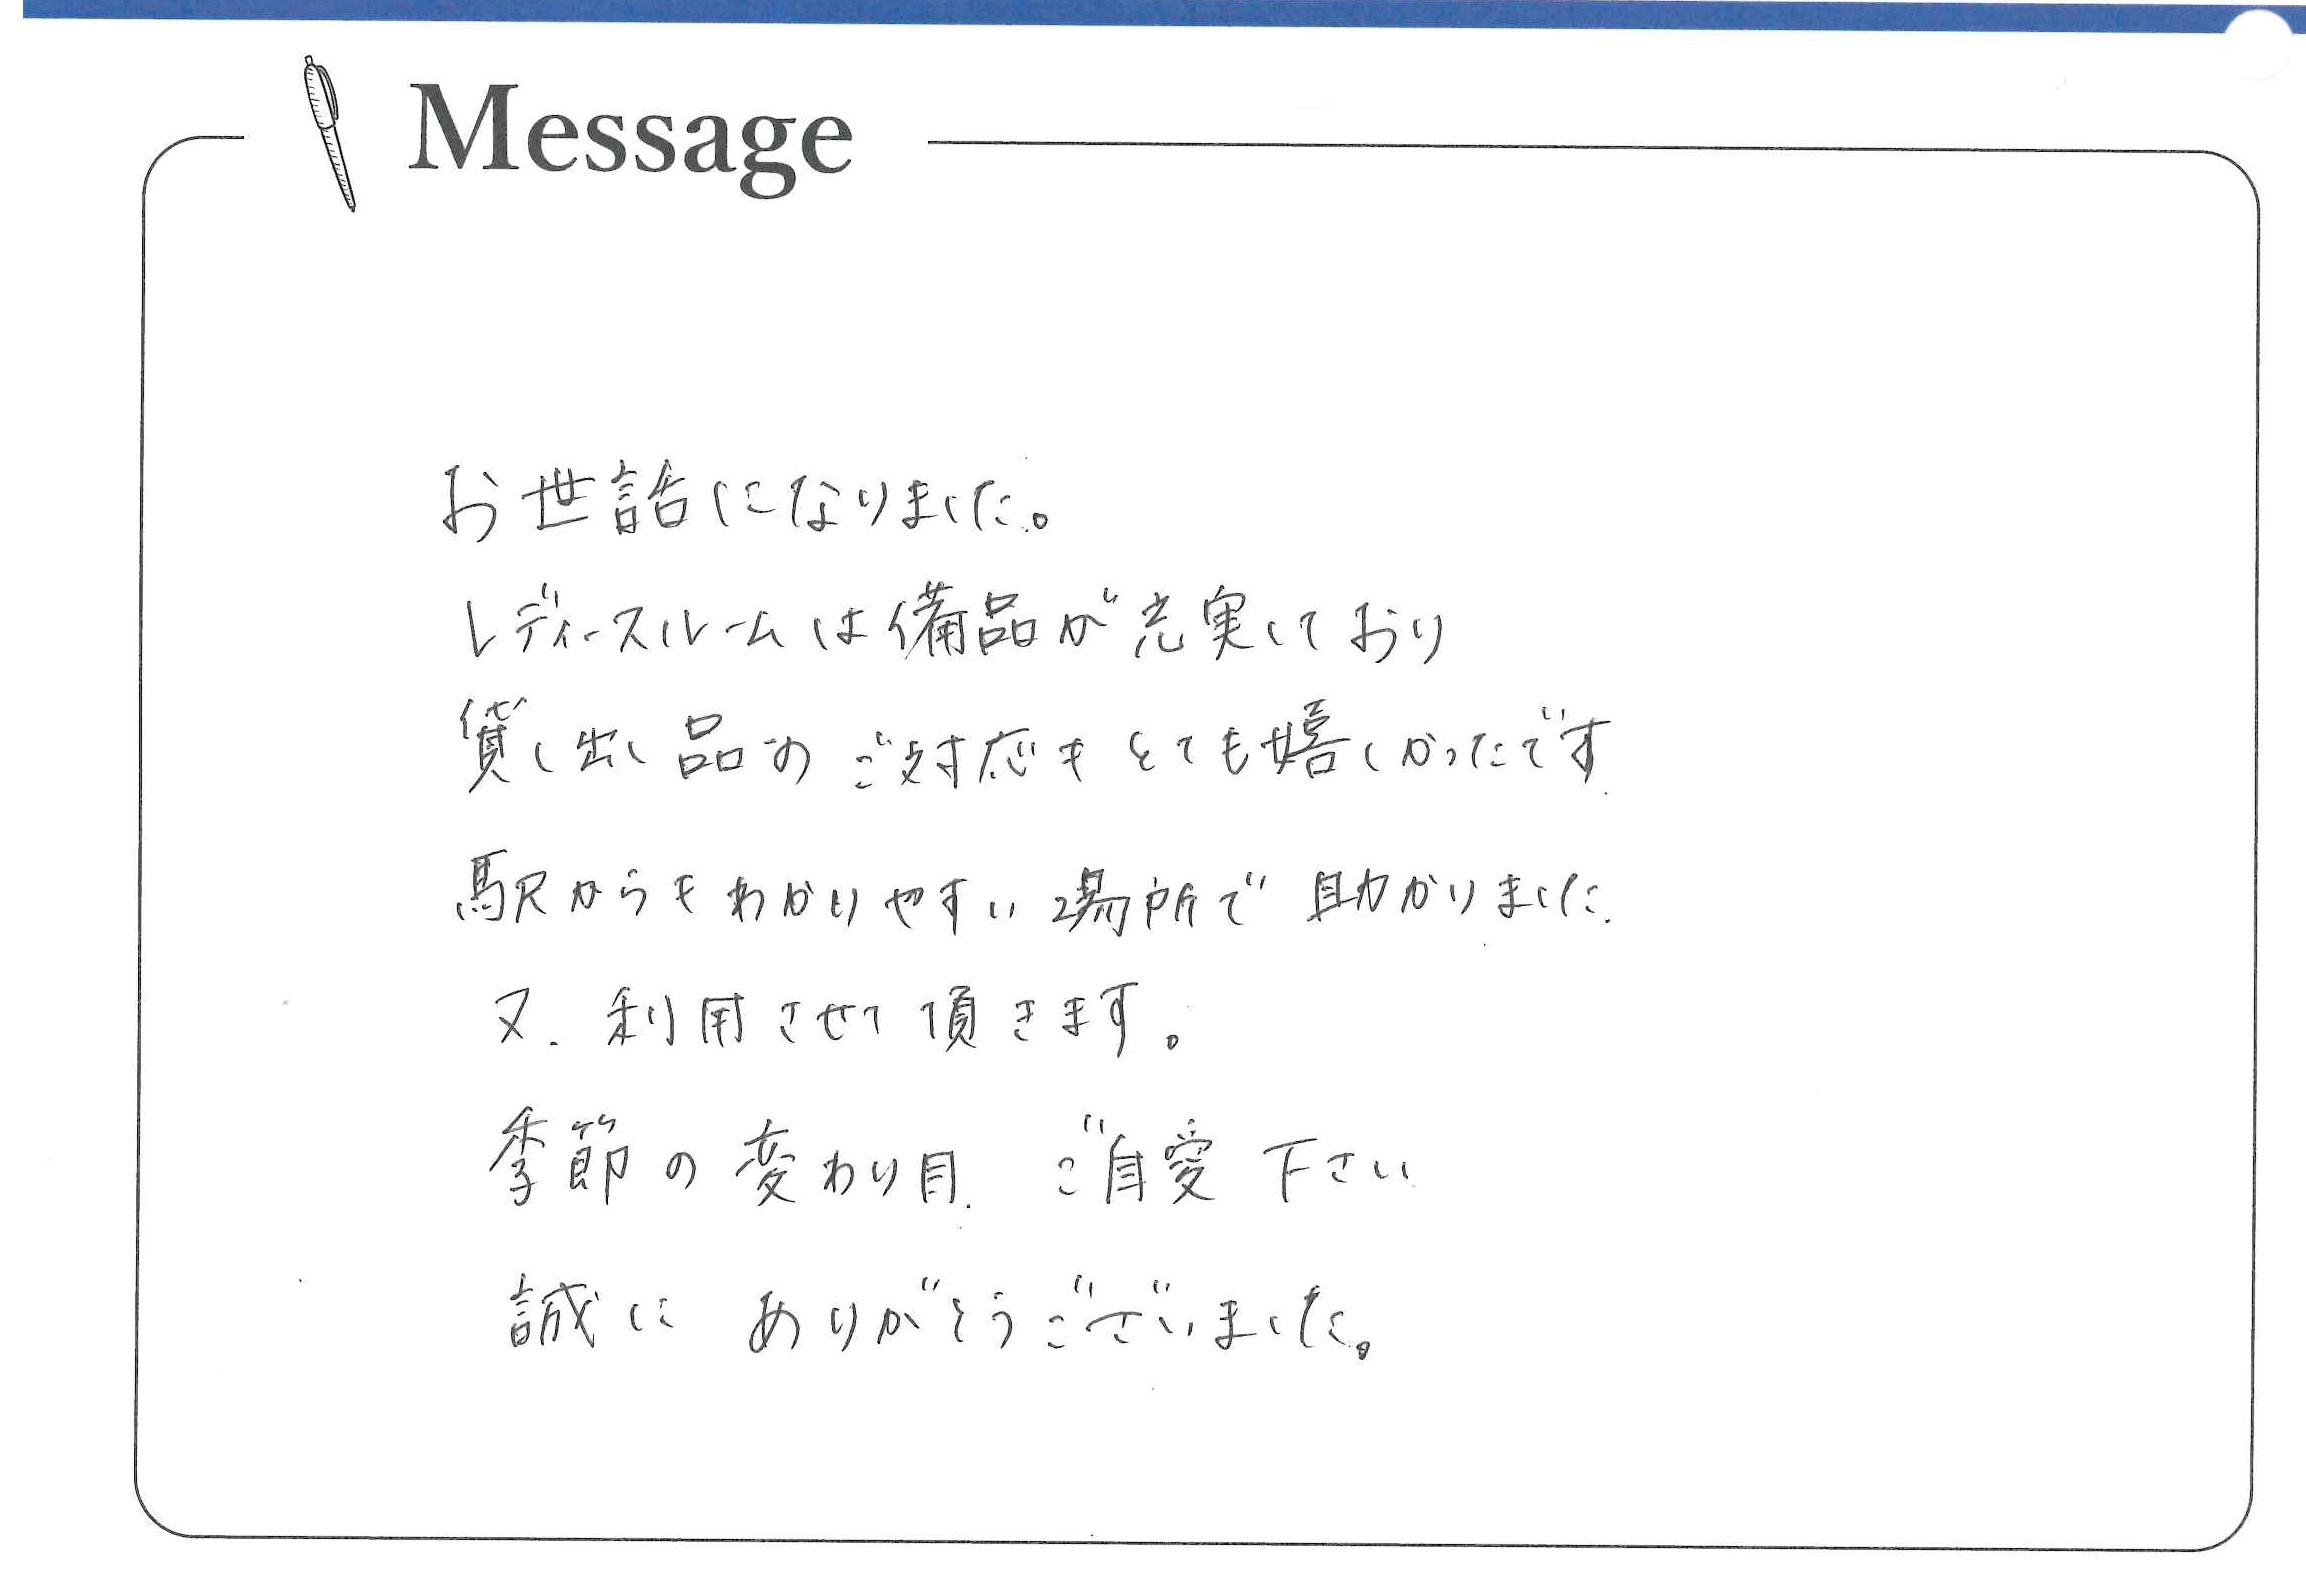 Message
お世話になりました。
レディースルームは備品が充実しており
貸し出し品のご対応もとても嬉しかったです
駅からもわかりやすい場所で助かりました.
又、利用させて頂きます。
季節の変わり目、ご自愛下さい
誠にありがとうございました。